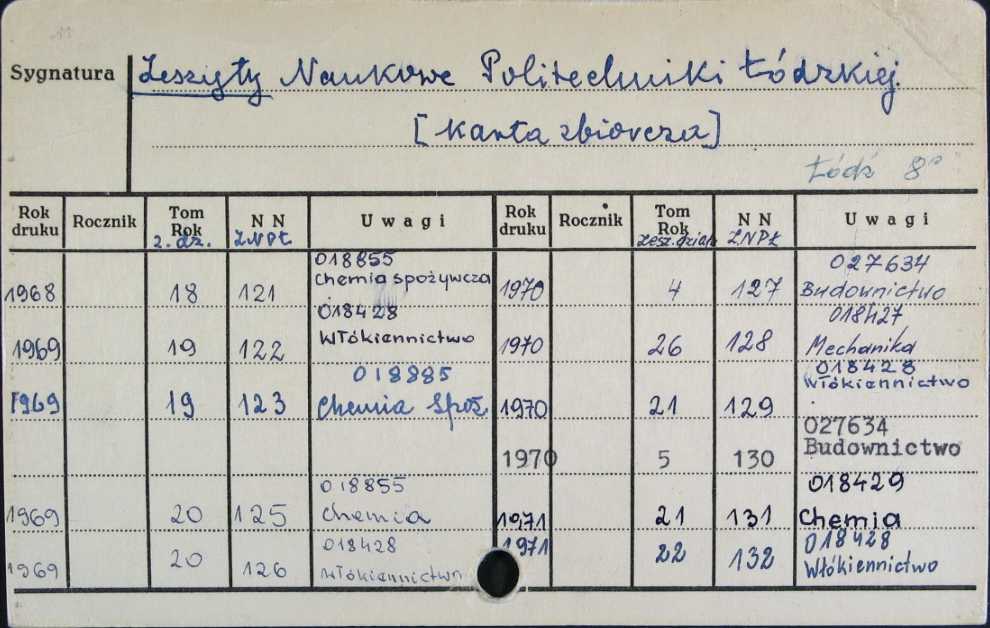 Sygnatura Zeszyty Naukowe Politechniki Łódzkiej.
[Karta zbiorcza]
Łódź 8°
Rok druku Rocznik Tom Rok z. dz. NN ZNPŁ Uwagi Rok druku Rocznik Tom Rok Zesz. dział NN ZNPŁ Uwagi
1968 18 121 018855 Chemia spożywcza 1970 4 127 027634 Budownictwo
1969 19 122 018428 Włókiennictwo 1970 26 128 018427 Mechanika
1969 19 123 018885 Chemia Spoż. 1970 21 129 018428 Włókiennictwo
1970 5 130 027634 Budownictwo
1969 20 125 018855 Chemia 1971 21 131 018429 Chemia
1969 20 126 018428 Włókiennictwo 1971 22 132 018428 Włókiennictwo